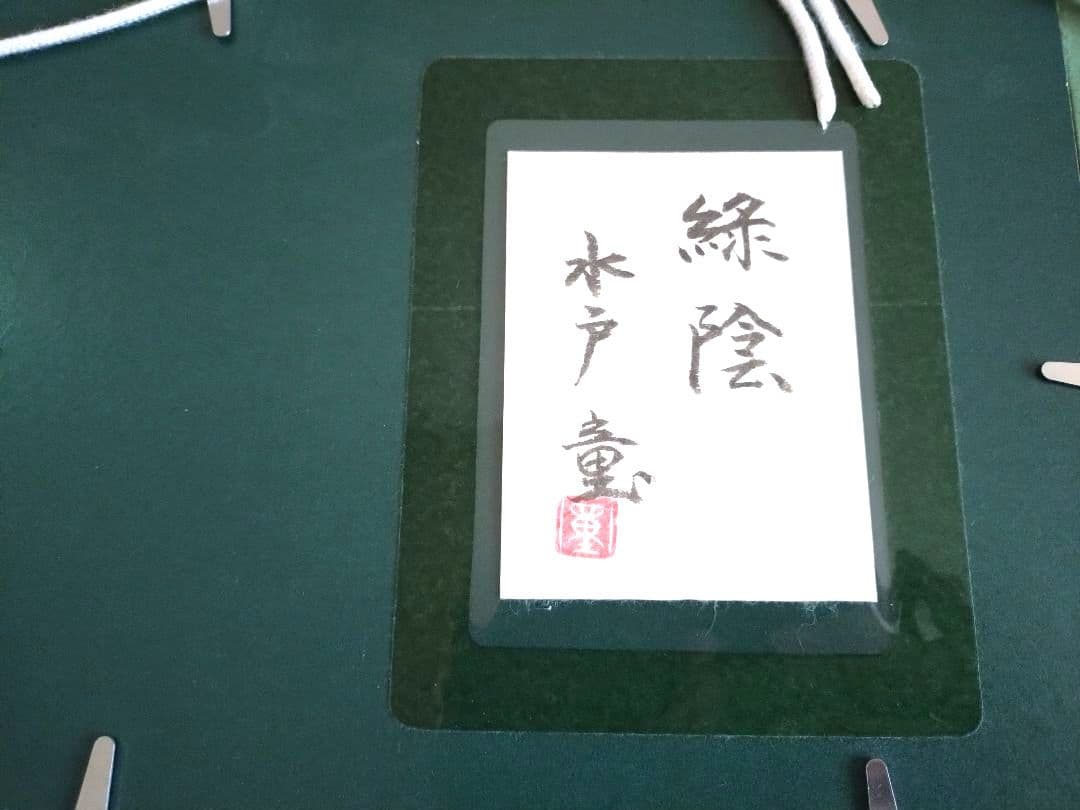 綠陰
水戸童
童